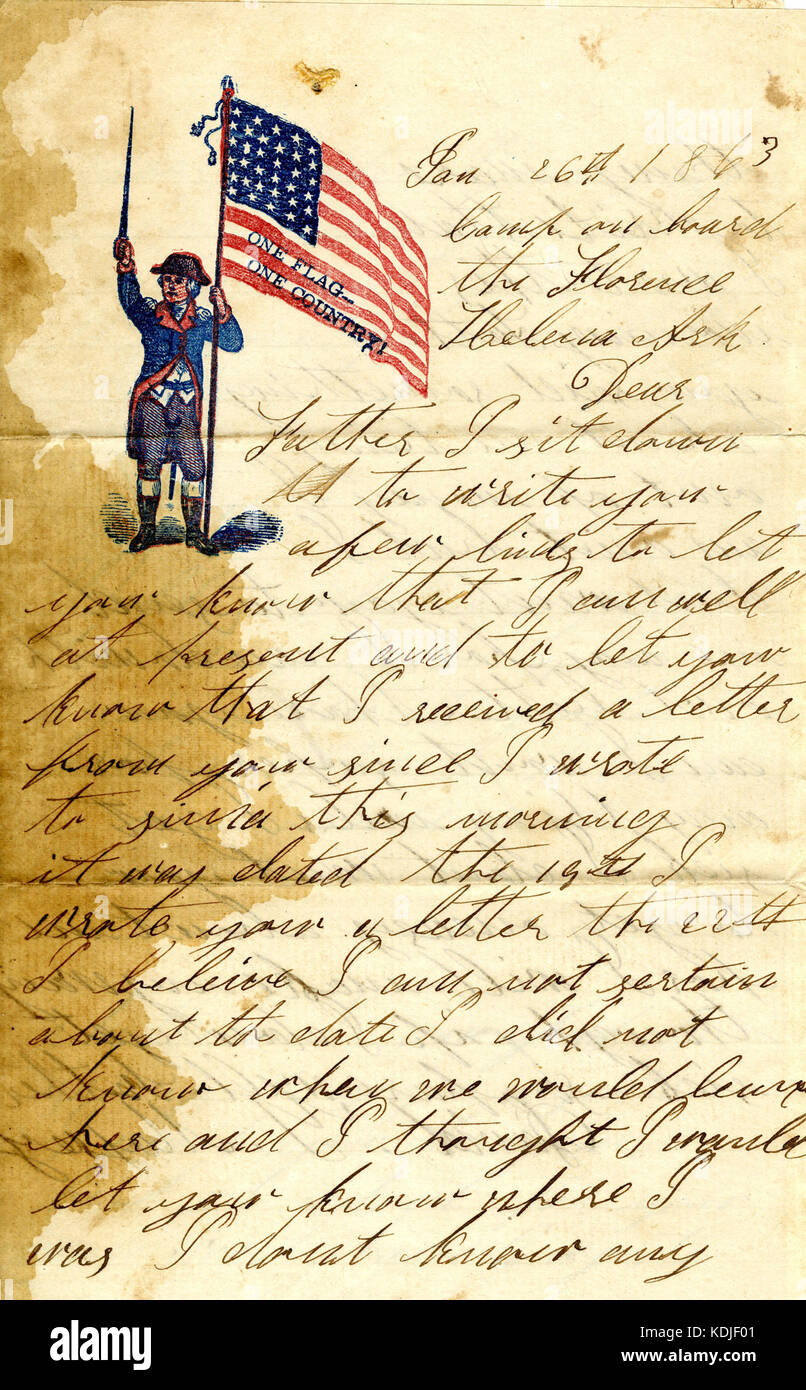 ONE FLAG...
ONE COUNTRY!
Jan 26th 1863
Camp on board
the Florence
Helena Ark.
Dear
Father I sit down
to write you
a few lines to let
you know that I am well
at present and to let you
know that I received a letter
from you since I wrote
to this morning
it was dated the 19th I
wrote you a letter the 22th
I beleive I am not sertain
about th date I did not
know when we would leave
here and I thought I would
let you know where I
was I dont know any
alamy
Image ID: KDJF01
www.alamy.com